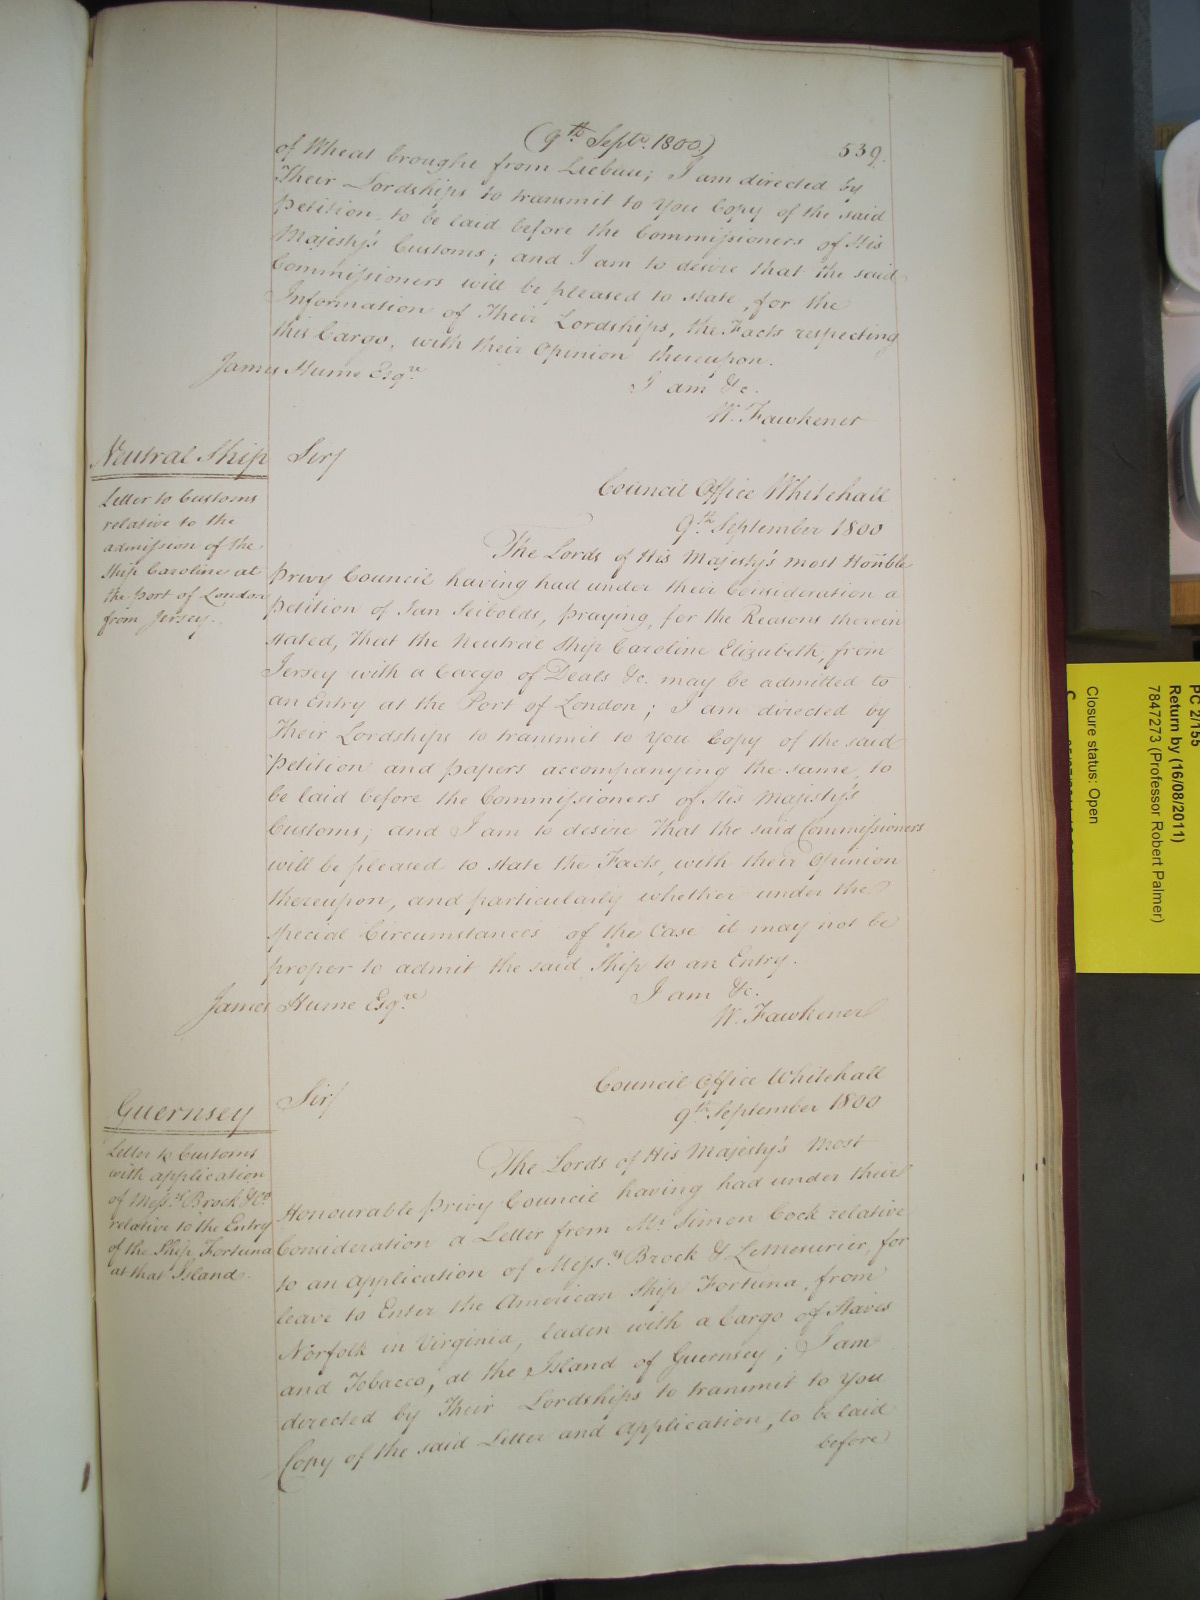 (9th Septr. 1800)
539.
of Wheat brought from Liebau; I am directed by
Their Lordships to transmit to You Copy of the said
Petition, to be laid before the Commissioners of His
Majesty's Customs; and I am to desire that the said
Commissioners will be pleased to state, for the
Information of Their Lordships, the Facts respecting
this Cargo, with their Opinion thereupon.
I am &c.
James Hume Esqre
W. Fawkener
Neutral Ship
Letter to Customs
relative to the
admission of the
Ship Caroline at
the Port of London
from Jersey.
Sir/
Council Office Whitehall
9th September 1800
The Lords of His Majesty's most Honble
Privy Council having had under their Consideration a
Petition of Jan Seibolds, praying, for the Reasons therein
stated, that the Neutral Ship Caroline Elizabeth, from
Jersey with a Cargo of Deals &c. may be admitted to
an Entry at the Port of London; I am directed by
Their Lordships to transmit to You Copy of the said
Petition and papers accompanying the same, to
be laid before the Commissioners of His Majesty's
Customs; and I am to desire that the said Commissioners
will be pleased to state the Facts, with their Opinion
thereupon, and particularly whether under the
special Circumstances of the Case it may not be
proper to admit the said Ship to an Entry.
I am &c.
James Hume Esqre
W. Fawkener
Guernsey
Letter to Customs
with application
of Messrs Brock & Co
relative to the Entry
of the Ship Fortuna
at that Island.
Sir/
Council Office Whitehall
9th September 1800
The Lords of His Majesty's Most
Honourable Privy Council having had under their
Consideration a Letter from Mr Simon Cock relative
to an application of Messrs Brock & LeMesurier, for
leave to Enter the American Ship Fortuna, from
Norfolk in Virginia, laden with a Cargo of Staves
and Tobacco, at the Island of Guernsey; I am
directed by Their Lordships to transmit to You
Copy of the said Letter and Application, to be laid
before
PC 2/155
Return by (16/08/2011)
7847273 (Professor Robert Palmer)
Closure status: Open